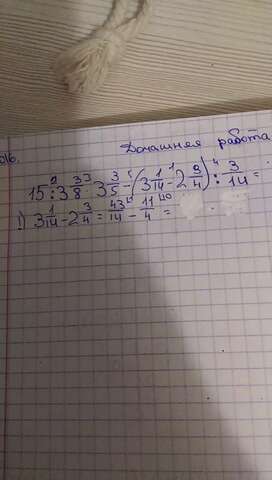 016.
Домашняя работа
15 : 3 3/8 · 3 3/5 - (3 1/14 - 2 3/4) : 3/14 =
1) 3 1/14 - 2 3/4 = 43/14 - 11/4 =